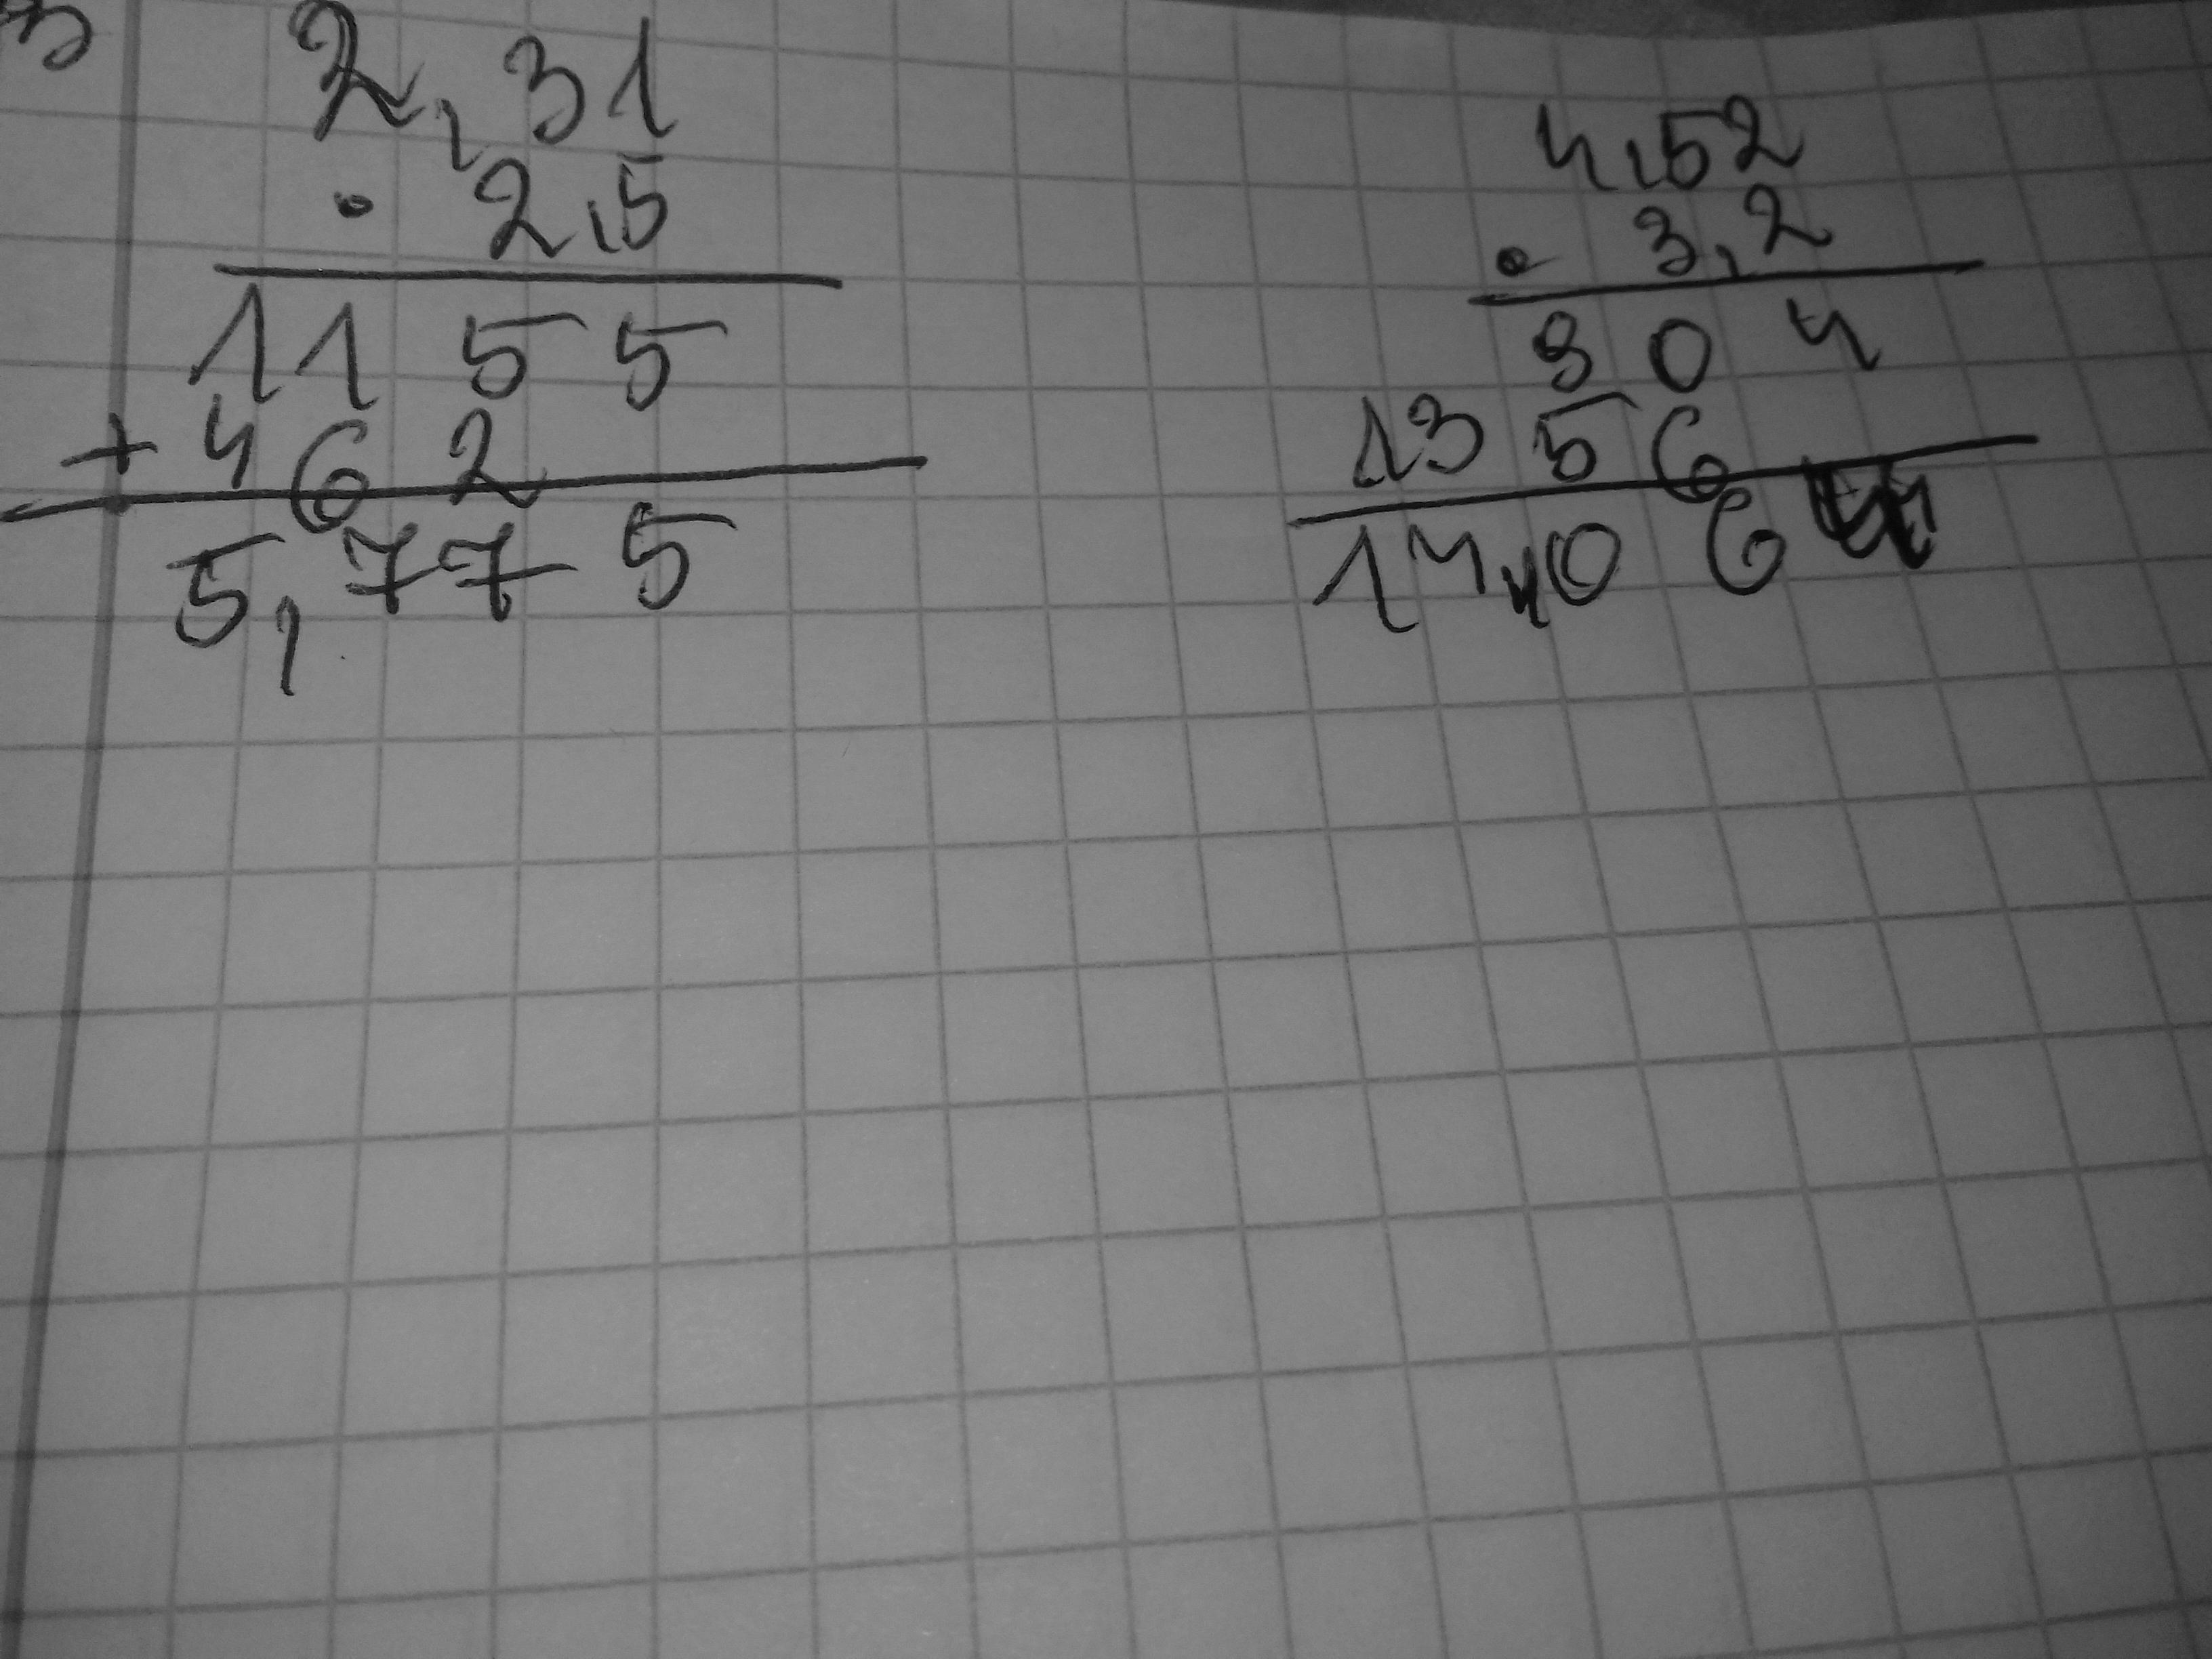 2,31
· 2,5
1155
+ 462
5,775
4,52
· 3,2
904
1356
14,064